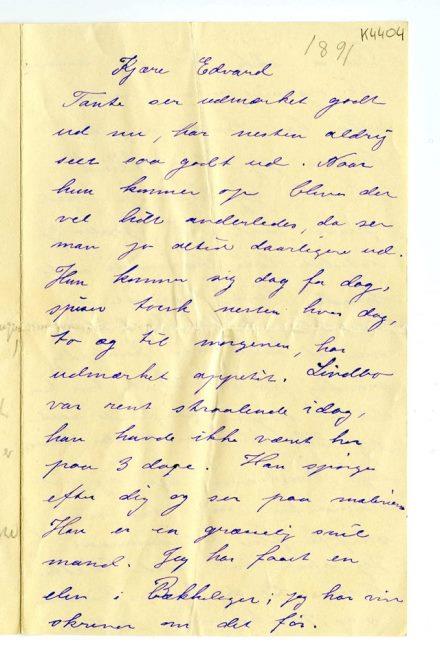 K4404
1891
Kjære Edvard
Tante ser udmærket godt
ud nu, har nesten aldrig
seet saa godt ud. Naar
hun kommer op bliver det
vel lidt anderledes, da ser
man jo altid daarligere ud.
Hun kommer sig dag for dag,
spiser torsk nesten hver dag,
to æg til morgenen, har
udmærket appetit. Lindbo
var rent straalende idag,
han havde ikke været her
paa 3 dage. Han spørger
efter dig og ser paa malerierne
Han er en græsselig snil
mand. Jeg har faaet en
elev i Bækkelaget; jeg har vist
skrevet om det før.